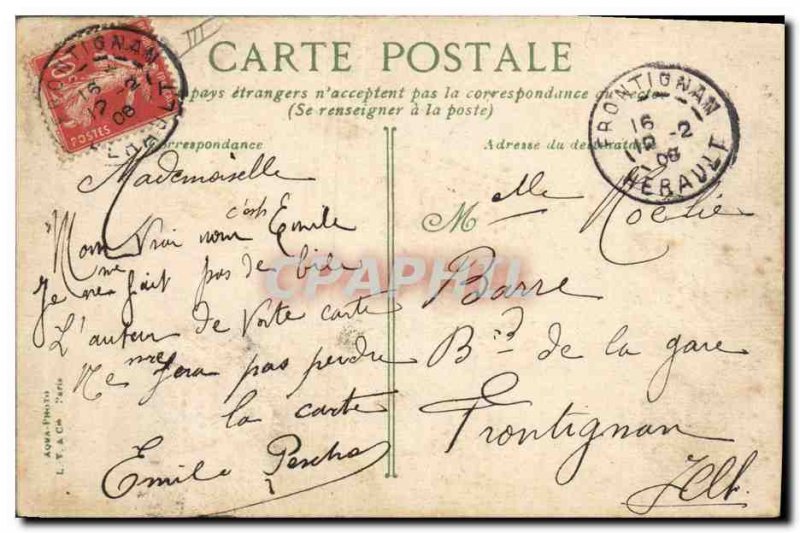 CARTE POSTALE
pays étrangers n'acceptent pas la correspondance au recto
(Se renseigner à la poste)
Correspondance
Adresse du destinataire
FRONTIGNAN
16
12 -2
08
HERAULT
POSTES
FRONTIGNAN
16
19 -2
08
HERAULT
III
Mademoiselle
c'est
Mon Vrai nom Emile
me
Je fait pas de bide
L'auteur de Votre carte
Ne fera pas perdre
la carte
Emile
Melle Noelie
Barre
Bd de la gare
Frontignan
Hlt
AQUA-PHOTO
L. V. & Cie Paris
CPAPHIL